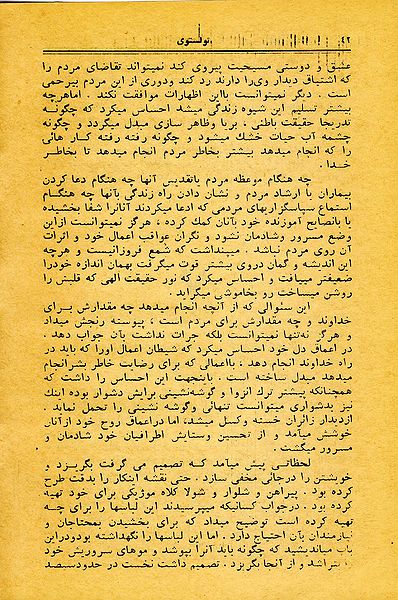 ۴۲ تولستوی
عشق و دوستی مسیحیت پیروی کند نمیتواند تقاضای مردم را
که اشتیاق دیدار وی‌را دارند رد کند ودوری از این مردم بیرحمی
است . دیگر نمیتوانست بااین اظهارات موافقت نکند . اماهرچه
بیشتر تسلیم این شیوه زندگی میشد احساس میکرد که چگونه
تدریجا حقیقت باطنی ، بریا وظاهر سازی مبدل میگردد و چگونه
چشمه آب حیات خشك میشود و چگونه رفته رفته کار هائی
را که انجام میدهد بیشتر بخاطر مردم انجام میدهد تا بخاطر
خدا .
چه هنگام موعظه مردم یاتقدیس آنها چه هنگام دعا کردن
بیماران یا ارشاد مردم و نشان دادن راه زندگی بآنها چه هنگام
استماع سپاسگزاریهای مردمی که ادعا میکردند آنانرا شفا بخشیده
یا بانصایح آموزنده خود بآنان کمك کرده ، هرگز نمیتوانست ازاین
وضع مسرور وشادمان نشود و نگران عواقب اعمال خود و اثرات
آن روی مردم نباشد . میپنداشت که شمع فروزانیست و هرچه
این اندیشه و گمان دروی بیشتر قوت میگرفت بهمان اندازه خودرا
ضعیفتر مییافت و احساس میکرد که نور حقیقت الهی که قلبش را
روشن میساخت رو بخاموشی میگراید .
این سئوالی که از آنچه انجام میدهد چه مقدارش برای
خداوند و چه مقدارش برای مردم است ، پیوسته رنجش میداد
و هرگز نه‌تنها نمیتوانست بلکه جرات نداشت بآن جواب دهد .
در اعماق دل خود احساس میکرد که شیطان اعمال اورا که باید در
راه خداوند انجام دهد ، بااعمالی که برای رضایت خاطر بشرانجام
میدهد مبدل ساخته است . باینجهت این احساس را داشت که
همچنانکه پیشتر ترك انزوا و گوشه‌نشینی برایش دشوار بوده اینك
نیز بدشواری میتوانست تنهائی وگوشه نشینی را تحمل نماید .
ازدیدار زائران خسته وکسل میشد، اما دراعماق روح خود ازآنان
خوشش میآمد و از تحسین وستایش اطرافیان خود شادمان و
مسرور میگشت .
لحظاتی پیش میآمد که تصمیم می گرفت بگریزد و
خویشتن را درجائی مخفی سازد . حتی نقشه اینکار را بدقت طرح
کرده بود . پیراهن و شلوار و شولا کلاه موژیکی برای خود تهیه
کرده بود . درجواب کسانیکه میپرسیدند این لباسها را برای چه
تهیه کرده است توضیح میداد که برای بخشیدن بمحتاجان و
نیازمندان بآن احتیاج دارد . اما این لباسها را نگهداشته بودودراین
باب میاندیشید که چگونه باید آنرا بپوشد و موهای سرورِیش خود
را بتراشد و از آنجا بگریزد . تصمیم داشت نخست در حدودسیصد